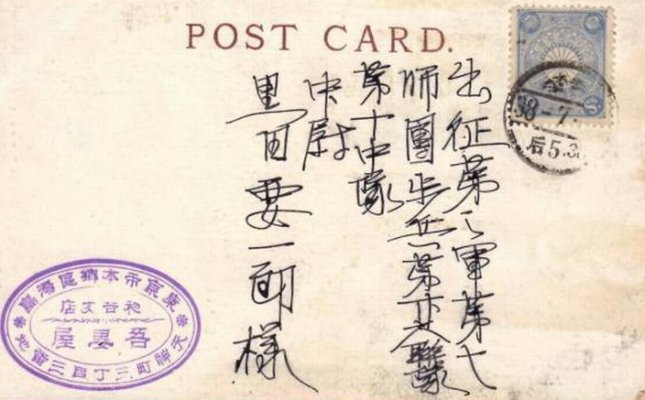 POST CARD.
出征第三軍第七
師團歩兵第廿聯隊
第十中隊
中尉
黒田要一郎様
38-7
后5.3
東京市本郷區湯島
支店
吾妻屋
天神町三丁目三番地